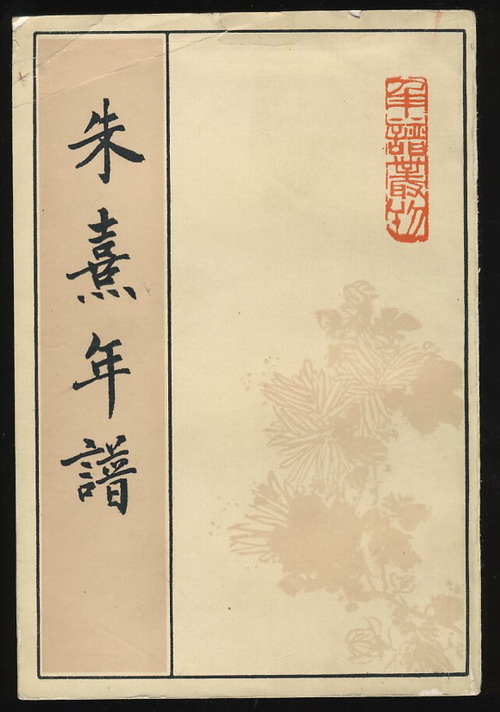 朱熹年譜
年譜叢刊